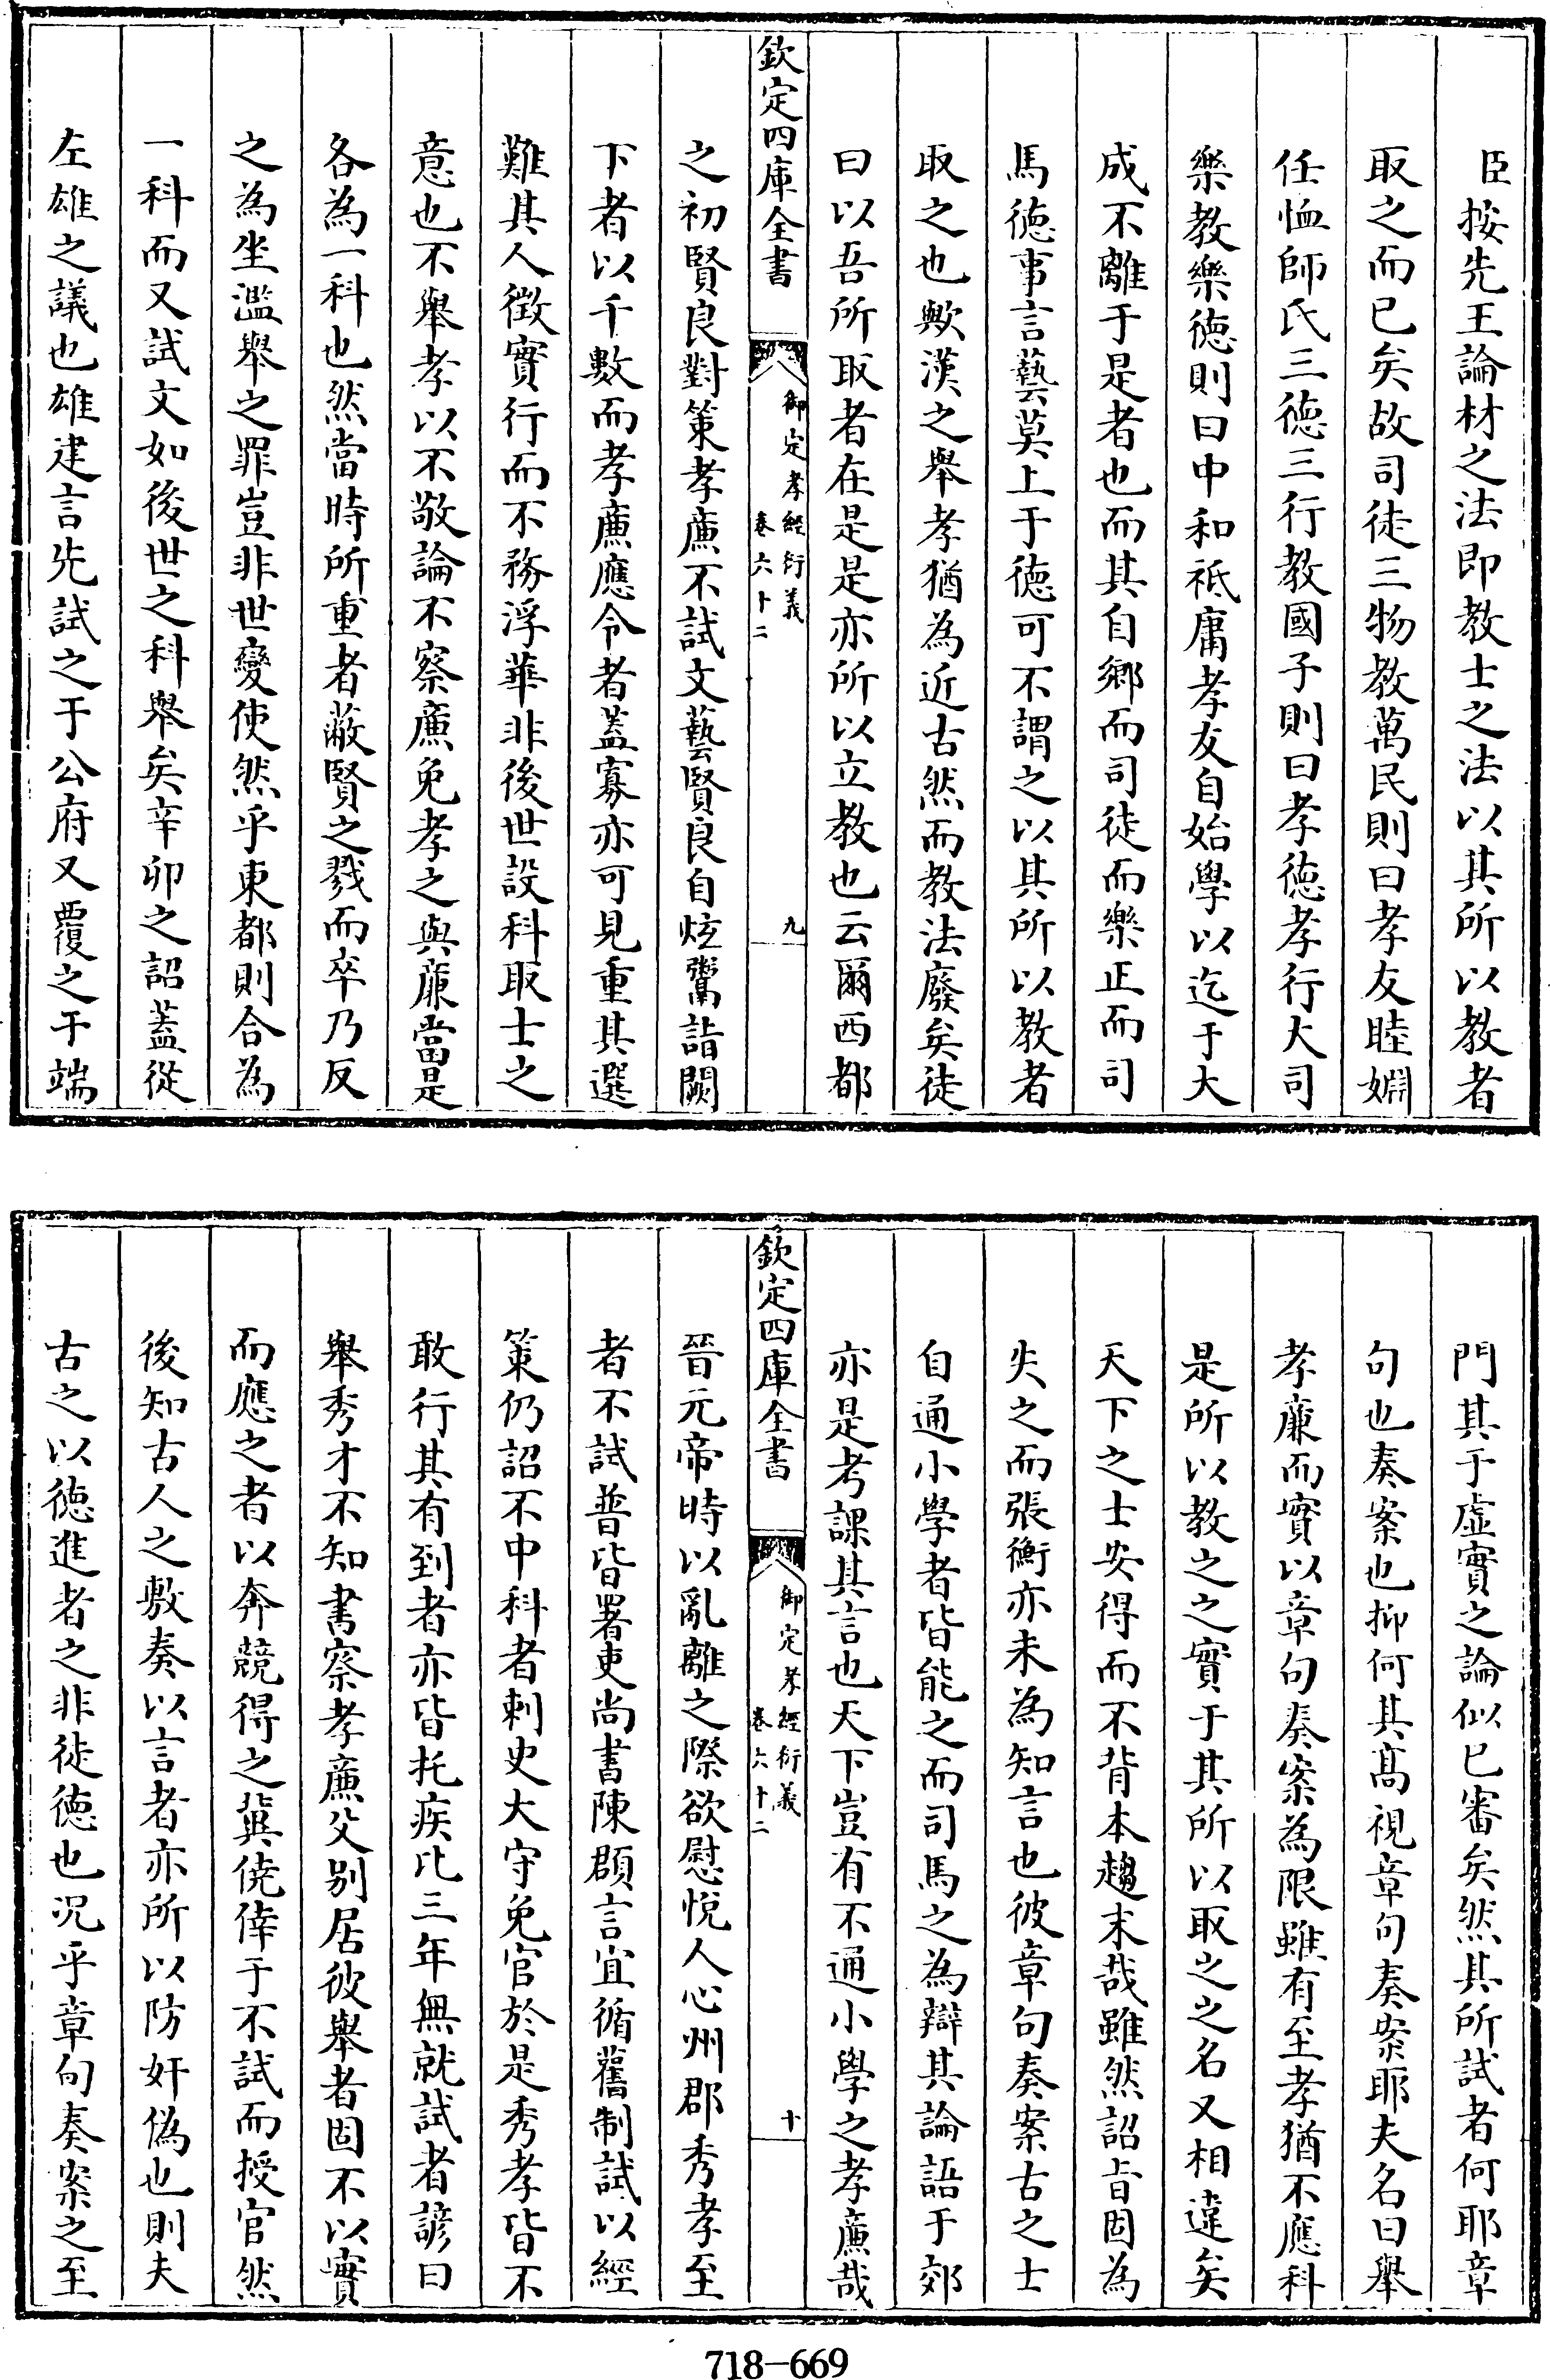 臣按先王論材之法即教士之法以其所以教者
取之而已矣故司徒三物教萬民則曰孝友睦婣
任恤師氏三德三行教國子則曰孝德孝行大司
樂教樂德則曰中和祗庸孝友自始學以迄于大
成不離于是者也而其自鄉而司徒而樂正而司
馬德事言藝莫上于德可不謂之以其所以教者
取之也歟漢之舉孝猶為近古然而教法廢矣徒
曰以吾所取者在是是亦所以立教也云爾西都
欽定四庫全書
御定孝經衍義
卷六十二
九
之初賢良對策孝廉不試文藝賢良自炫鬻詣闕
下者以千數而孝廉應令者蓋寡亦可見重其選
難其人徵實行而不務浮華非後世設科取士之
意也不舉孝以不敬論不察廉免孝之與廉當是
各為一科也然當時所重者蔽賢之戮而卒乃反
之為坐濫舉之罪豈非世變使然乎東都則合為
一科而又試文如後世之科舉矣辛卯之詔蓋從
左雄之議也雄建言先試之于公府又覆之于端
門其于虛實之論似已審矣然其所試者何耶章
句也奏案也抑何其髙視章句奏案耶夫名曰舉
孝廉而實以章句奏案為限雖有至孝猶不應科
是所以教之之實于其所以取之之名又相違矣
天下之士安得而不背本趨末哉雖然詔㫖固為
失之而張衡亦未為知言也彼章句奏案古之士
自通小學者皆能之而司馬之為辯其論語于郊
亦是考課其言也天下豈有不通小學之孝廉哉
欽定四庫全書
御定孝經衍義
卷六十二
十
晉元帝時以亂離之際欲慰悅人心州郡秀孝至
者不試普皆署吏尚書陳頵言宜循舊制試以經
策仍詔不中科者刺史大守免官於是秀孝皆不
敢行其有到者亦皆托疾比三年無就試者諺曰
舉秀才不知書察孝廉父别居彼舉者固不以實
而應之者以奔競得之冀僥倖于不試而授官然
後知古人之敷奏以言者亦所以防奸偽也則夫
古之以德進者之非徒德也况乎章句奏案之至
718-669